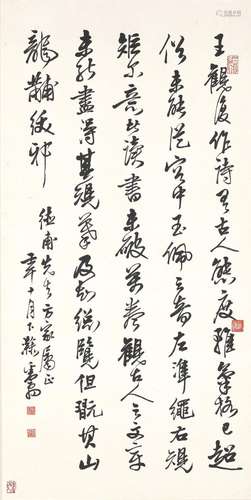 王觀復作詩有古人態度雖氣格已超
俗未能從容中玉佩之音左準繩右規
矩尔意者讀書未破萬卷觀古人之文章
未能盡得其規摹及所總覽但玩其山
龍黼黻邪
先生方家屬正
十月下